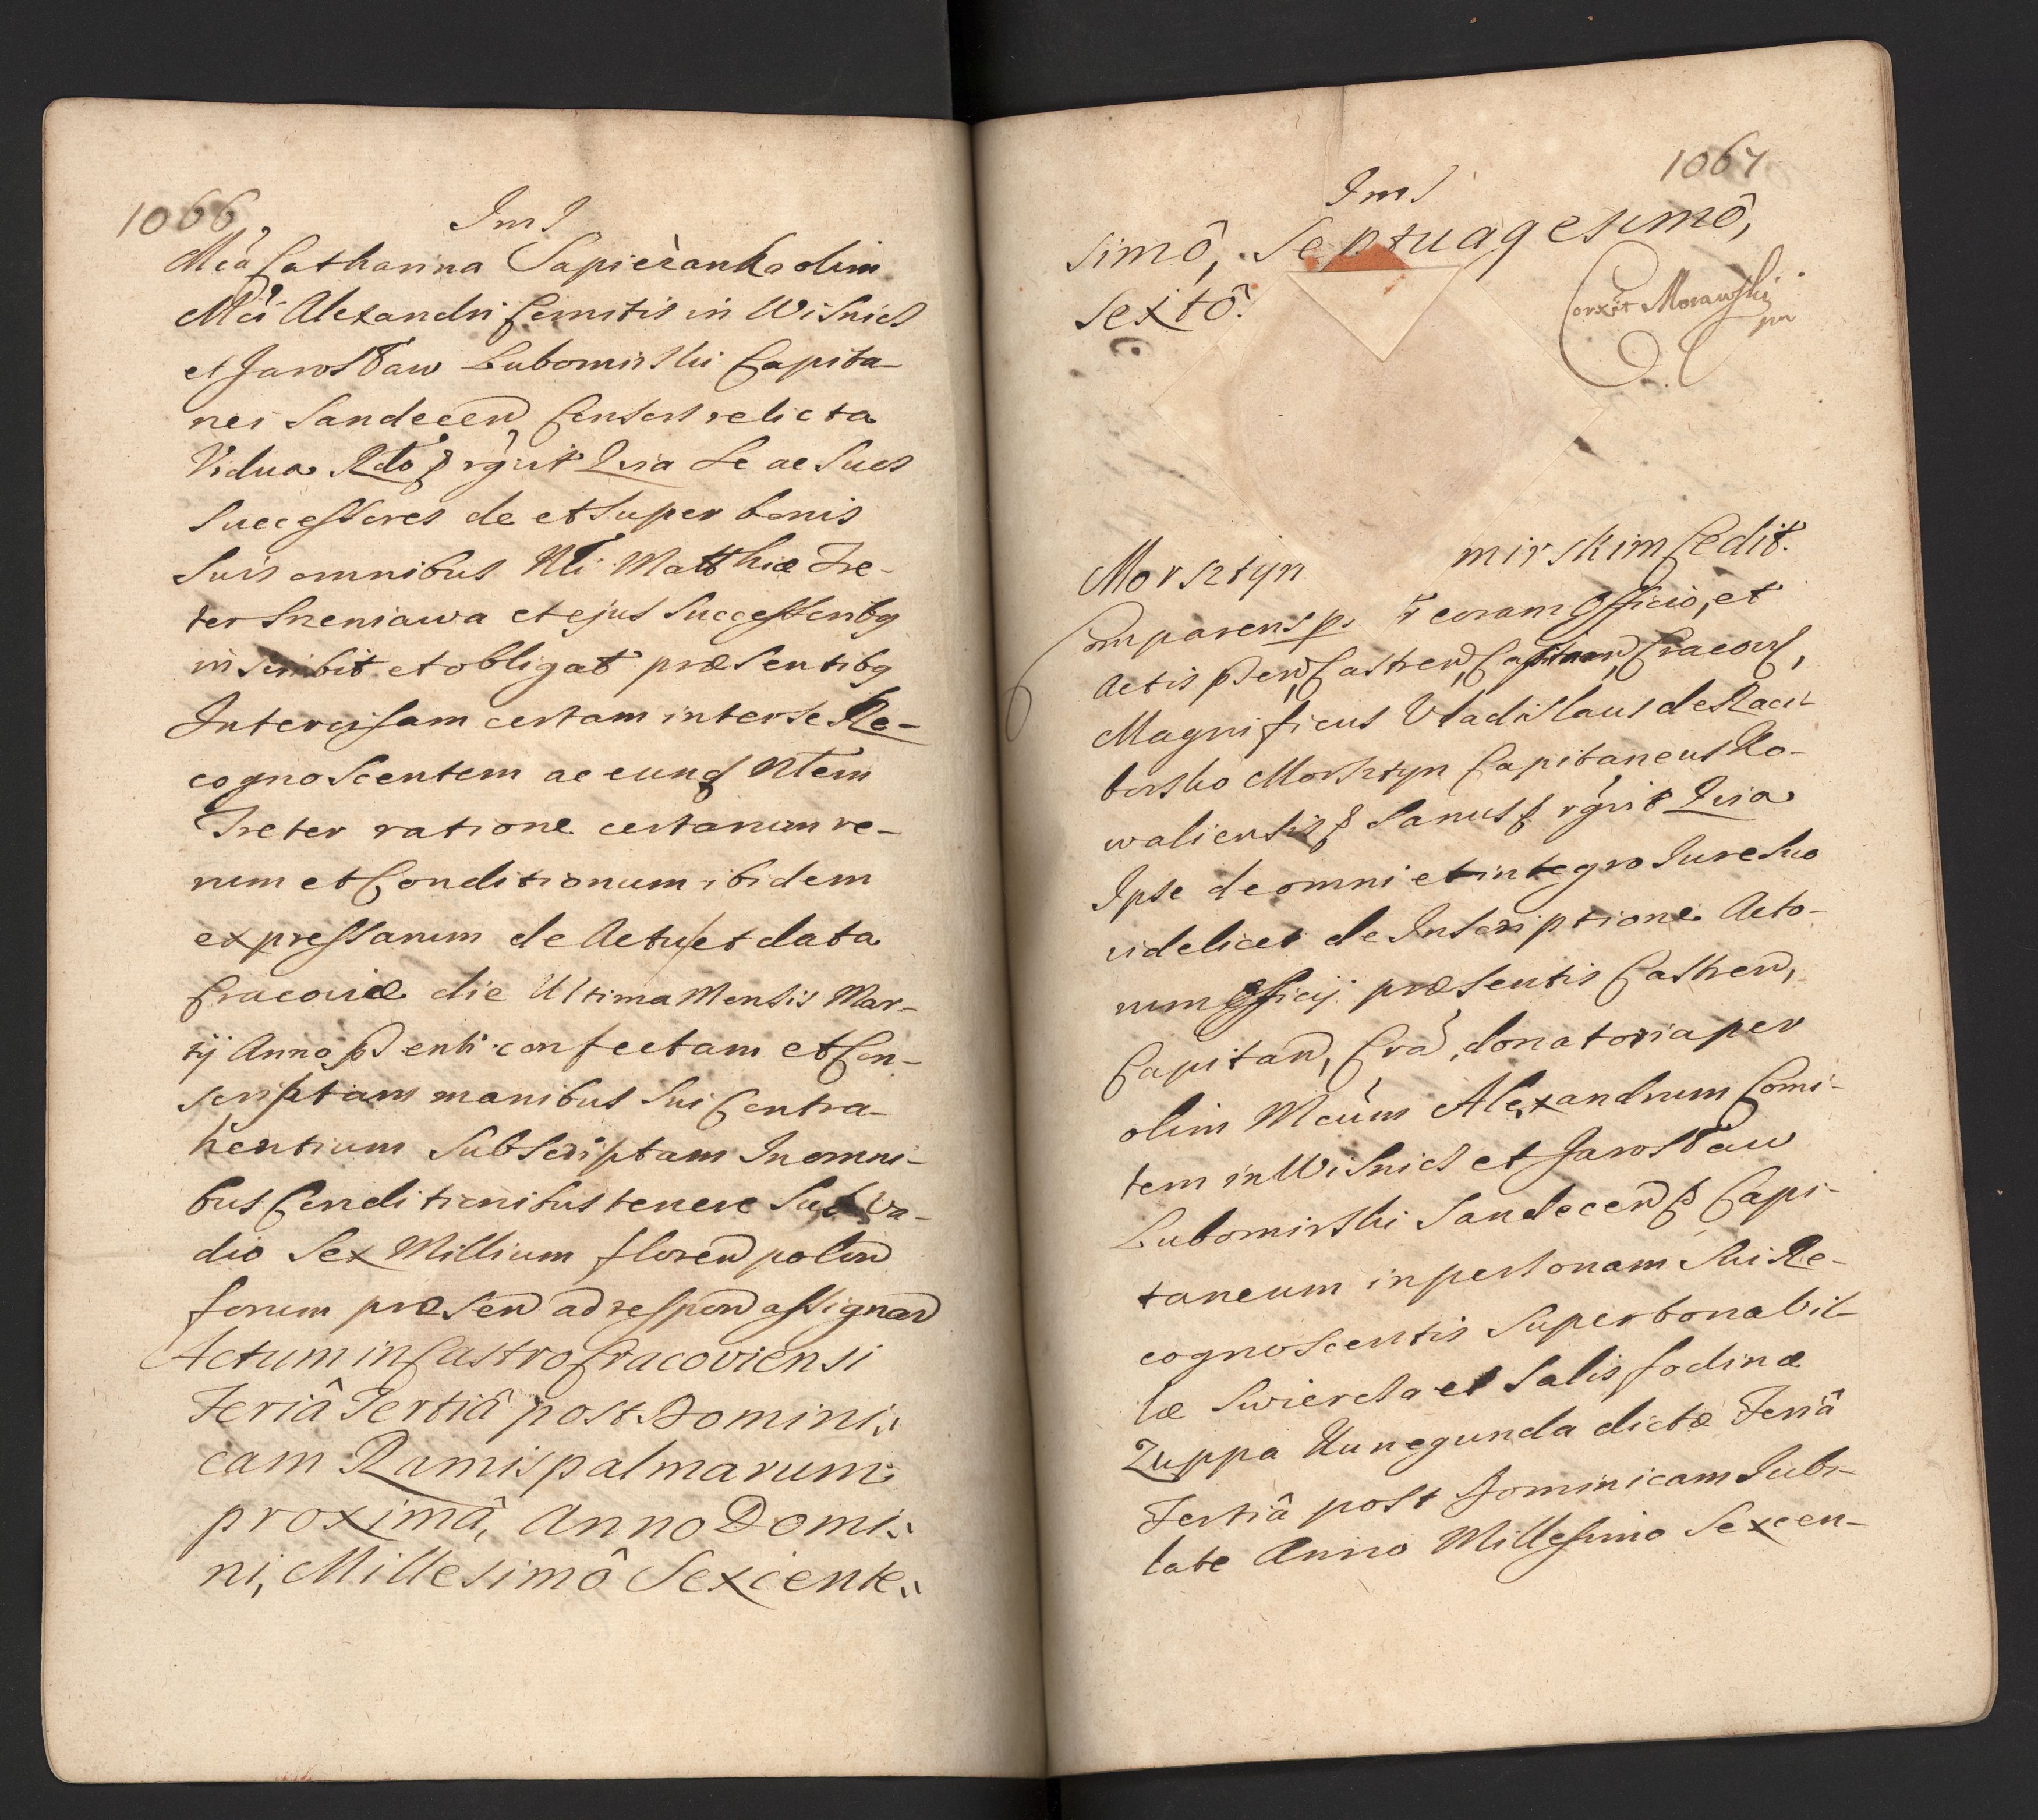 1066
Ims
Mca Catharina Sapieżanka olim
Mci Alexandri Comitis in Wisnicz
et Jarosław Lubomirski Capita-
nei Sandecen Consors relicta
Vidua Rdo rgvit Quia Se ac Suos
Successores de et super bonis
Suis omnibus Nli Matthiæ Tre-
ter Sreniawa et ejus Successoribq
inscribit et obligat præsentibq
Intercisam certam inter se Re-
cognoscentem ac eund Nlem
Treter ratione certarum re-
rum et Conditionum ibidem
expressarum de Actu et data
Cracoviæ die Ultima Mensis Mar-
tij Anno pnti confectam et Con-
scriptam manibus Sui Contra-
hentium Subscriptam In omni-
bus Conditionibus tenere Sub Va-
dio Sex Millium floren polon
forum præsen ad respon assignan
Actum in Castro Cracoviensi
Feriâ Tertiâ post Domini-
cam Ramispalmarum
proximâ, Anno Domi-
ni, Millesimô Sexcente-
1067
Ims
simô, Septuagesimô,
Sextô.
Correxit Morawski
mp
Morsztyn mirskim Cedit.
Comparens pr coram Officio, et
Actis pnn, Castren, Capitan, Cracov,
Magnificus Vladislaus de Raci-
borsko Morsztyn Capitaneus Ko-
waliensis Sanus rgvit Quia
Ipse de omni et integro Jure Suo
videlicet de Inscriptione Acto-
rum Officij præsentis Castren,
Capitan, Cra, donatoria per
olim Mcum Alexandrum Comi-
tem in Wisnicz et Jarosław
Lubomirski Sandecen Capi-
taneum in personam Sui Re-
cognoscentis Super bona Vil-
læ Swiercza et Salis fodinæ
Zuppa Kunegunda dictæ Feriâ
Tertiâ post Dominicam Jubi-
late Anno Millesimo Sexcen-